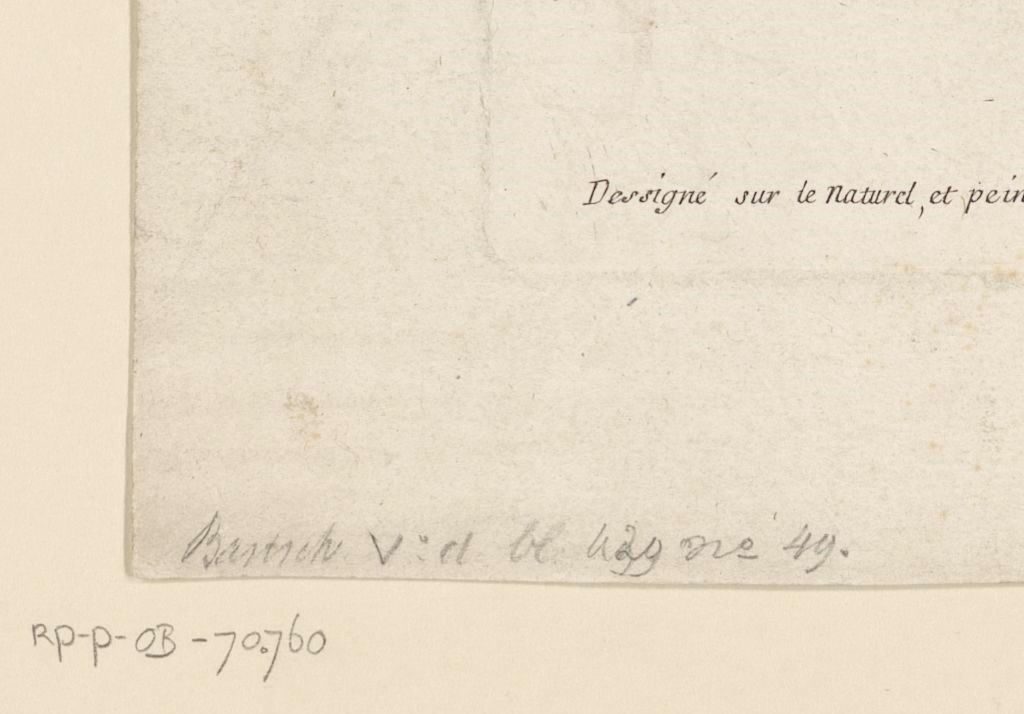 Dessigné sur le naturel, et pein
Bartsch V: d bl. 429 no 49.
RP-P-OB-70.760